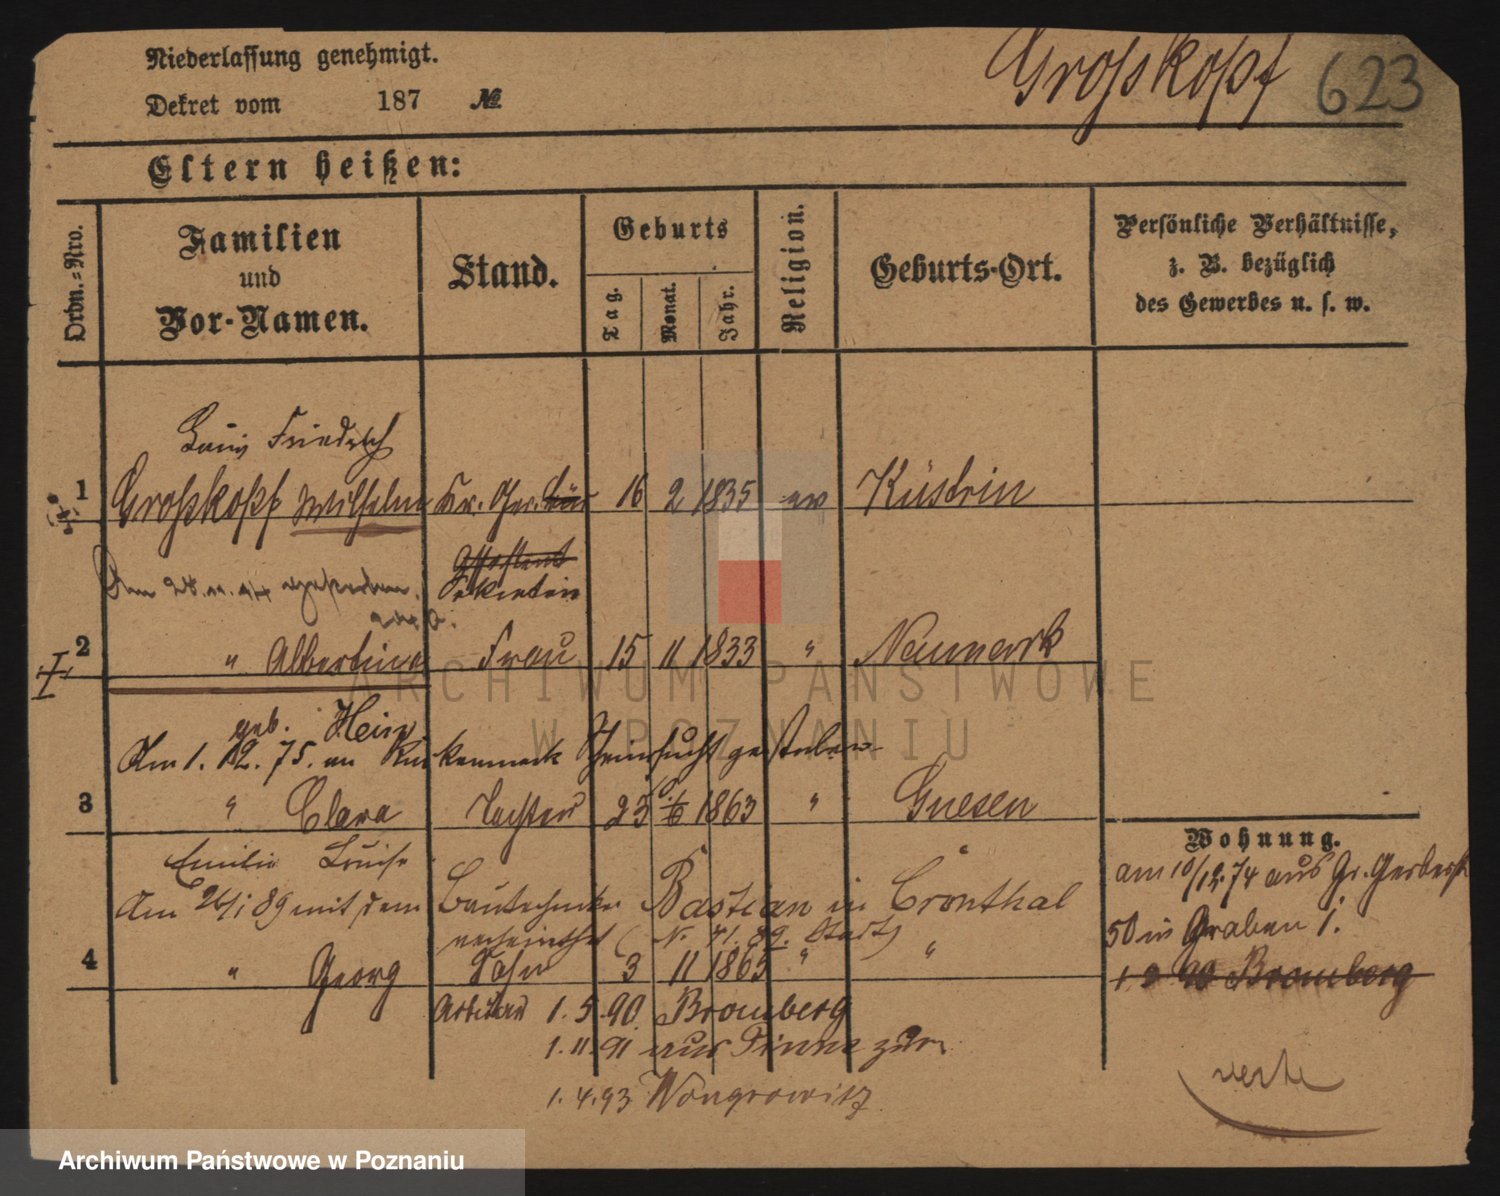 Niederlassung genehmigt.
Dekret vom 187 №
Groſskopf 623
Eltern heißen:
Ordn.=Nro.
Familien
und
Vor-Namen.
Stand.
Geburts
Tag.
Monat.
Jahr.
Religion.
Geburts-Ort.
Persönliche Verhältnisse,
z. B. bezüglich
des Gewerbes u. s. w.
Louis Friedrich
1 Groſskopf Wilhelm Kr. Ger. 16 2 1835 ev Küstrin
Am gestorben.
Assistent
Sekretair
2 " Albertine Frau 15 11 1833 " Neumark
geb. Hein
Am 1. 12. 75. an gestorben
3 " Clara Tochter 23 1863 " Gnesen
Emilie Louise
Am 26/1 89 mit dem Bautechniker Bastian in Cronthal
verheirathet (N. 71. 89. Stadt)
4 " Georg Sohn 3 11 1865 " "
Arbeiter 1. 5. 90. Bromberg
1. 11. 91 aus Pinne zur.
1. 4. 93 Wongrowitz
Wohnung.
am 10/12. 74 aus Gr. Gerberst
50 in Graben 1.
1. 90 Bromberg
verte
ARCHIWUM PAŃSTWOWE
W POZNANIU
Archiwum Państwowe w Poznaniu